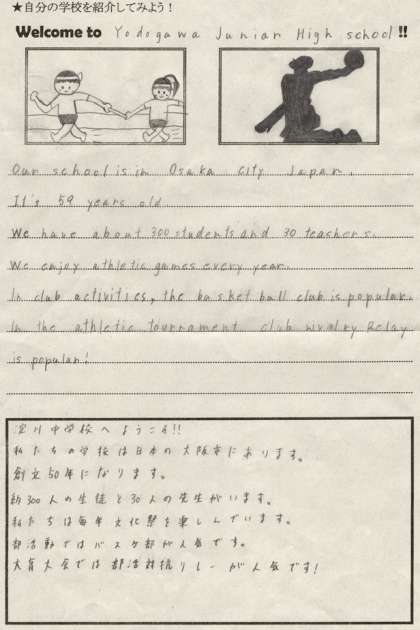 ★自分の学校を紹介してみよう！
Welcome to Yodogawa Junior High school !!
Our school is in Osaka city Japan.
It's 59 years old
We have about 300 students and 30 teachers.
We enjoy athletic games every year.
In club activities, the basket ball club is popular.
In the athletic tournament club rivalry Relay
is popular!
淀川中学校へようこそ!!
私たちの学校は日本の大阪市にあります。
創立50年になります。
約300人の生徒と30人の先生がいます。
私たちは毎年文化祭を楽しんでいます。
部活動ではバスケ部が人気です。
体育大会では部活対抗リレーが人気です!